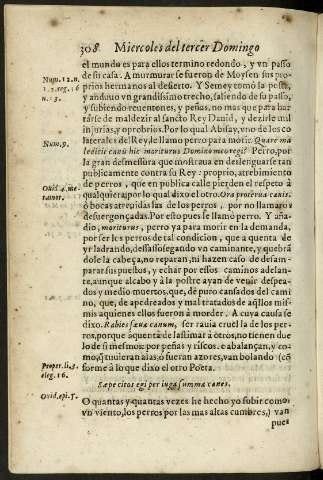 308 Miercoles del tercer Domingo
el mundo es para ellos termino redondo, y vn passo
de su casa. A murmurar se fueron de Moysen sus pro-
prios hermanos al desierto. Y Semey tomò la posta,
y anduuo vn grandissimo trecho, saliendo de su passo,
y subiendo reuentones, y peñas, no mas que para har
tarse de maldezir al sancto Rey Dauid, y dezirle mil
injurias, y oprobrios. Por lo qual Abisay, vno de los co
laterales del Rey, le llamo perro para morir. Quare ma
ledicit canis hic moriturus Domino meo regi? Perro, por
la gran desmesura que mostraua en deslenguarse tan
publicamente contra su Rey: proprio, atrebimiento
de perros, que en publica calle pierden el respeto à
qualquiera, por lo qual dixo el otro. Ora proterua canis.
ò bocas atreuidas las de los perros, por no llamaros
desuergonçadas. Por esto pues le llamò perro. Y aña-
dio, moriturus, perro ya para morir en la demanda,
por ser los perros de tal condicion, que a quenta de
yr ladrando, dessassosegando vn caminante, y quebrã
dole la cabeça, no reparan, ni hazen caso de desam-
parar sus puestos, y echar por essos caminos adelan-
te, aunque al cabo y a la postre ayan de venir despea-
dos y medio muertos, que, de puro cansados del cami
no, que, de apedreados y mal tratados de aq̃llos mis-
mos aquienes ellos fueron à morder. A cuya causa se
dixo. Rabies sæua canum, ser rauia cruel la de los per-
ros, porque à quenta de lastimar à otros, no tienen due
lo de si mesmos: por peñas y riscos se abalançan, y co-
mo, si tuuieran alas, ò fueran azores, van bolando (cõ
forme à lo que dixo el otro Poeta.
Sæpe citos egi per iuga summa canes.
O quantas y quantas vezes he hecho yo subir como
vn viento, los perros por las mas altas cumbres,) van
pues
Num. 12. n.
1. 2. reg. 16
n. 5.
Num. 9.
Ouid. 4. me
tamor.
Proper. li. 3.
eleg. 16.
Ouid. epi. 5.